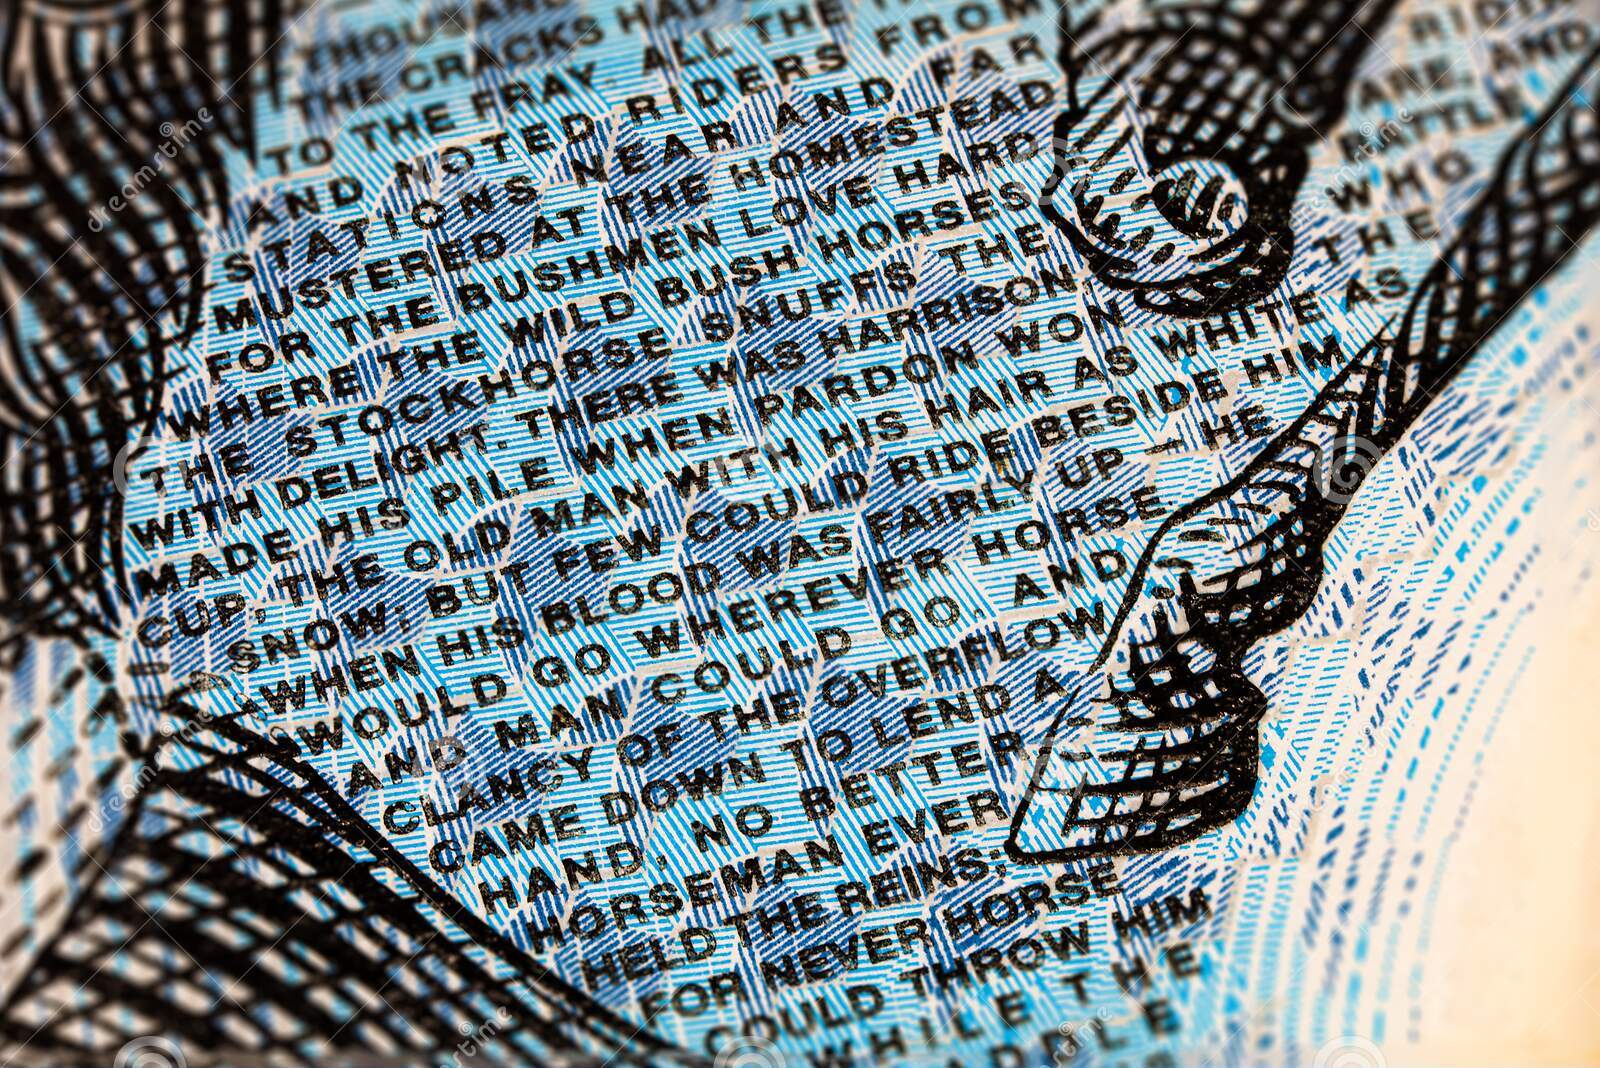 THE CRACKS HAD
TO THE FRAY. ALL THE
AND NOTED RIDERS FROM
STATIONS NEAR AND FAR
MUSTERED AT THE HOMESTEAD
FOR THE BUSHMEN LOVE HARD
WHERE THE WILD BUSH HORSES
THE STOCKHORSE SNUFFS THE
WITH DELIGHT. THERE WAS HARRISON
MADE HIS PILE WHEN PARDON WON THE
CUP, THE OLD MAN WITH HIS HAIR AS WHITE AS
SNOW; BUT FEW COULD RIDE BESIDE HIM
WHEN HIS BLOOD WAS FAIRLY UP – HE
WOULD GO WHEREVER HORSE
AND MAN COULD GO. AND
CLANCY OF THE OVERFLOW
CAME DOWN TO LEND A
HAND, NO BETTER
HORSEMAN EVER
HELD THE REINS;
FOR NEVER HORSE
COULD THROW HIM
WHILE THE
RIDIN
ARE, AND
WHO
dreamstime
dreamstime
dreamstime
dreamstime
dreamstime